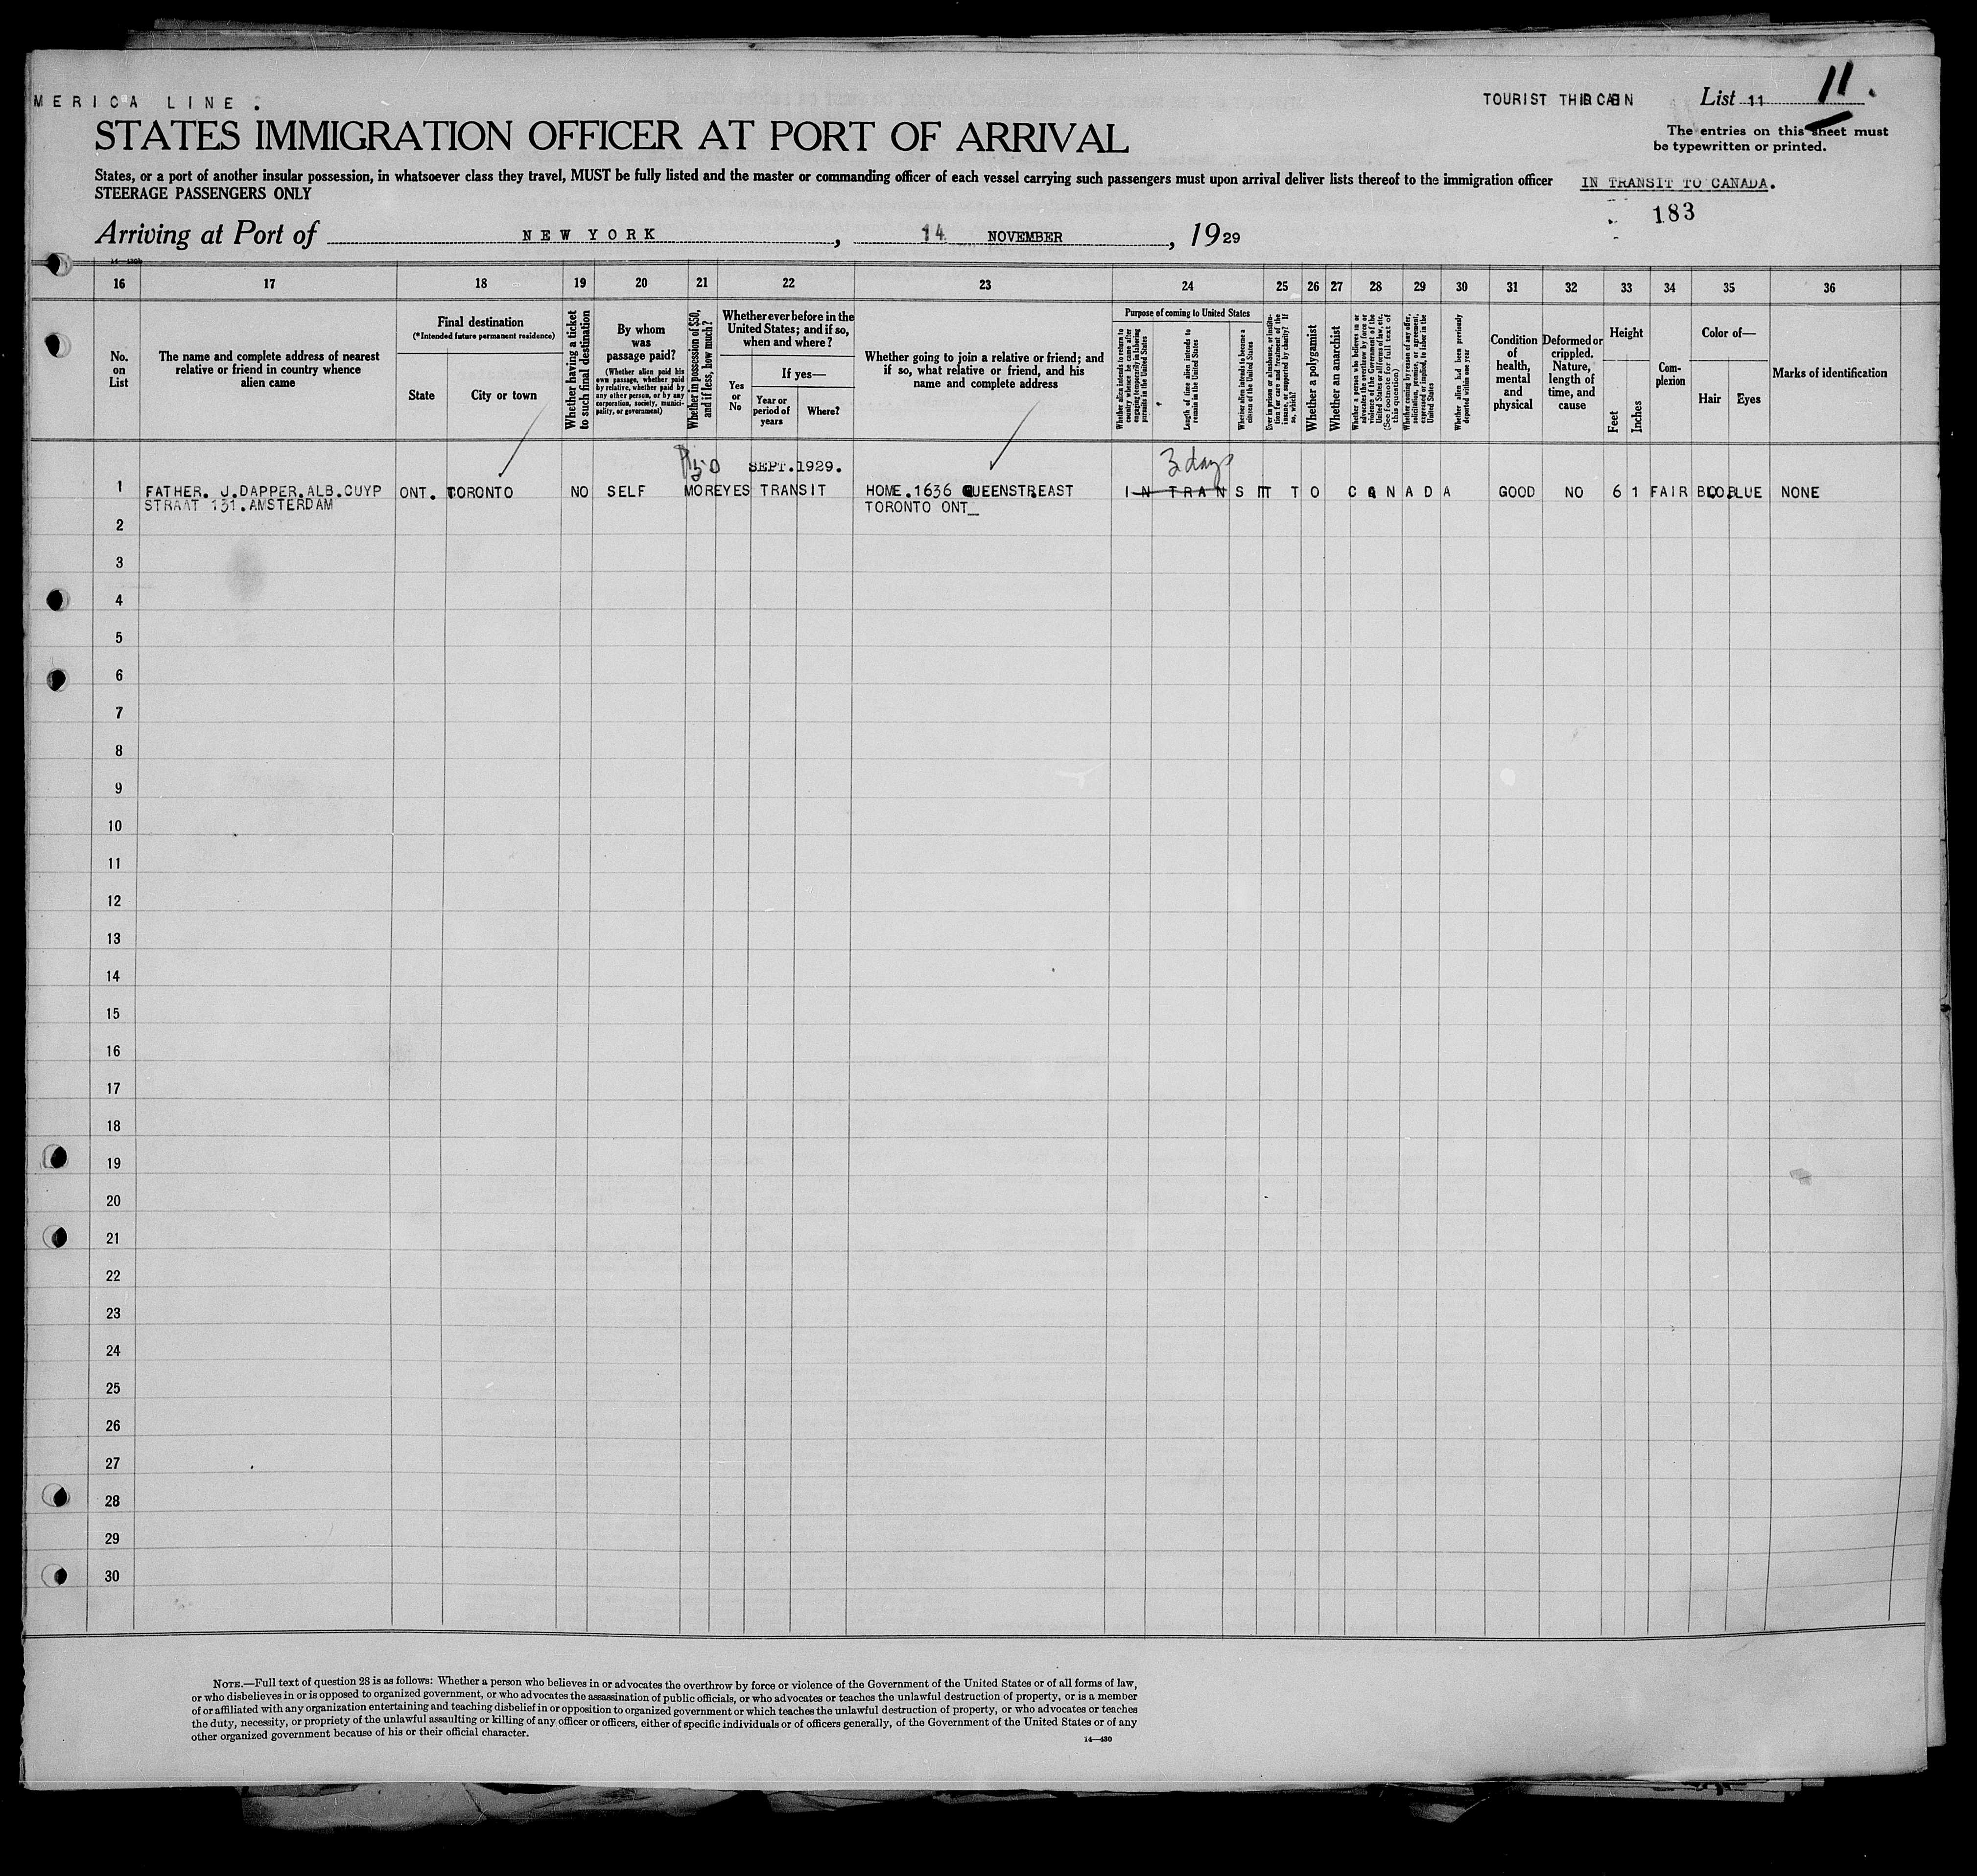 MERICA LINE.
TOURIST THIRD CABIN
List 11
11.
STATES IMMIGRATION OFFICER AT PORT OF ARRIVAL
The entries on this sheet must
be typewritten or printed.
States, or a port of another insular possession, in whatsoever class they travel, MUST be fully listed and the master or commanding officer of each vessel carrying such passengers must upon arrival deliver lists thereof to the immigration officer
STEERAGE PASSENGERS ONLY
IN TRANSIT TO CANADA.
183
Arriving at Port of NEW YORK, 14 NOVEMBER, 1929
16 17 18 19 20 21 22 23 24 25 26 27 28 29 30 31 32 33 34 35 36
No.
on
List
The name and complete address of nearest
relative or friend in country whence
alien came
Final destination
(*Intended future permanent residence)
State
City or town
Whether having a ticket
to such final destination
By whom
was
passage paid?
(Whether alien paid his
own passage, whether paid
by relative, whether paid by
any other person, or by any
corporation, society, munici-
pality, or government)
Whether in possession of $50,
and if less, how much?
Whether ever before in the
United States; and if so,
when and where?
Yes
or
No
If yes—
Year or
period of
years
Where?
Whether going to join a relative or friend; and
if so, what relative or friend, and his
name and complete address
Purpose of coming to United States
Whether alien intends to return to
country whence he came after
engaging temporarily in laboring
pursuits in the United States
Length of time alien intends to
remain in the United States
Whether alien intends to become a
citizen of the United States
Ever in prison or almshouse, or institu-
tion for care and treatment of the
insane, or supported by charity? If
so, which?
Whether a polygamist
Whether an anarchist
Whether a person who believes in or
advocates the overthrow by force or
violence of the Government of the
United States or all forms of law, etc.
(See footnote for full text of
this question)
Whether coming by reason of any offer,
solicitation, promise, or agreement,
expressed or implied, to labor in the
United States
Whether alien had been previously
deported within one year
Condition
of
health,
mental
and
physical
Deformed or
crippled.
Nature,
length of
time, and
cause
Height
Feet
Inches
Com-
plexion
Color of—
Hair
Eyes
Marks of identification
$50 SEPT.1929. 3 days
1 FATHER. J.DAPPER.ALB.CUYP ONT. TORONTO NO SELF MORE YES TRANSIT HOME.1636 QUEENSTREAST IN TRANSIT TO CANADA GOOD NO 6 1 FAIR BLO.BLUE NONE
STRAAT 131.AMSTERDAM TORONTO ONT
2
3
4
5
6
7
8
9
10
11
12
13
14
15
16
17
18
19
20
21
22
23
24
25
26
27
28
29
30
NOTE.—Full text of question 28 is as follows: Whether a person who believes in or advocates the overthrow by force or violence of the Government of the United States or of all forms of law,
or who disbelieves in or is opposed to organized government, or who advocates the assassination of public officials, or who advocates or teaches the unlawful destruction of property, or is a member
of or affiliated with any organization entertaining and teaching disbelief in or opposition to organized government or which teaches the unlawful destruction of property, or who advocates or teaches
the duty, necessity, or propriety of the unlawful assaulting or killing of any officer or officers, either of specific individuals or of officers generally, of the Government of the United States or of any
other organized government because of his or their official character.
14—430